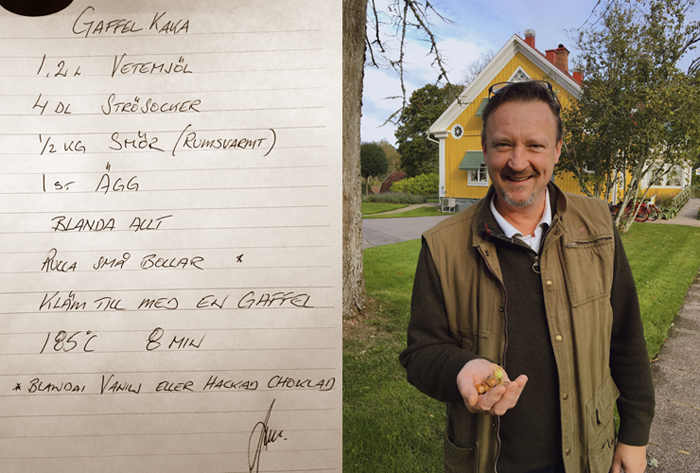 GAFFEL KAKA
1,2 L VETEMJÖL
4 DL STRÖSOCKER
1/2 KG SMÖR (RUMSVARMT)
1 ST ÄGG
BLANDA ALLT
RULLA SMÅ BOLLAR *
KLÄM TILL MED EN GAFFEL
185°C 8 MIN
* BLANDAI VANILJ ELLER HACKAD CHOKLAD